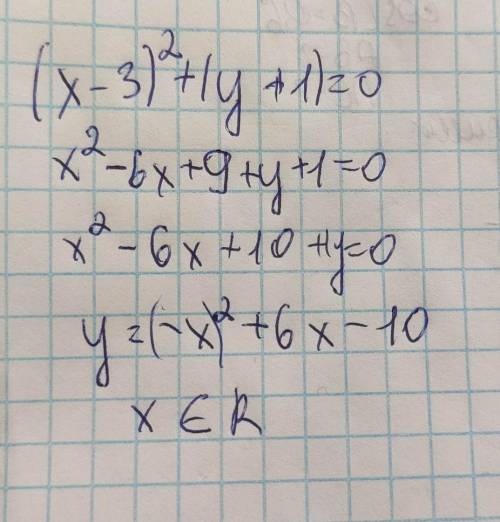 (x-3)²+(y+1)=0
x²-6x+9+y+1=0
x²-6x+10+y=0
y=(-x)²+6x-10
x ∈ R